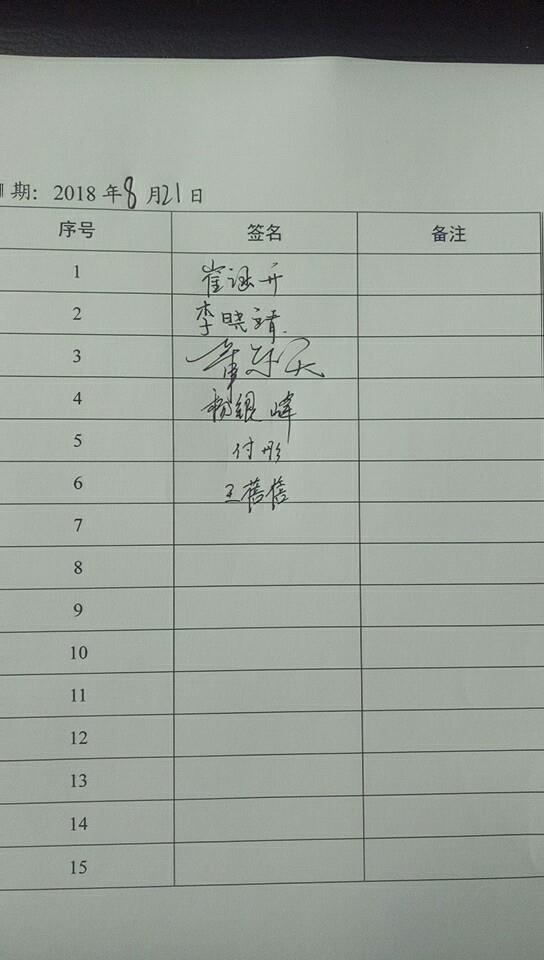 期: 2018 年 8 月 21 日
序号 签名 备注
1 崔 开
2 李晓靖
3
4 杨银峰
5 付彤
6 王蓓蓓
7
8
9
10
11
12
13
14
15